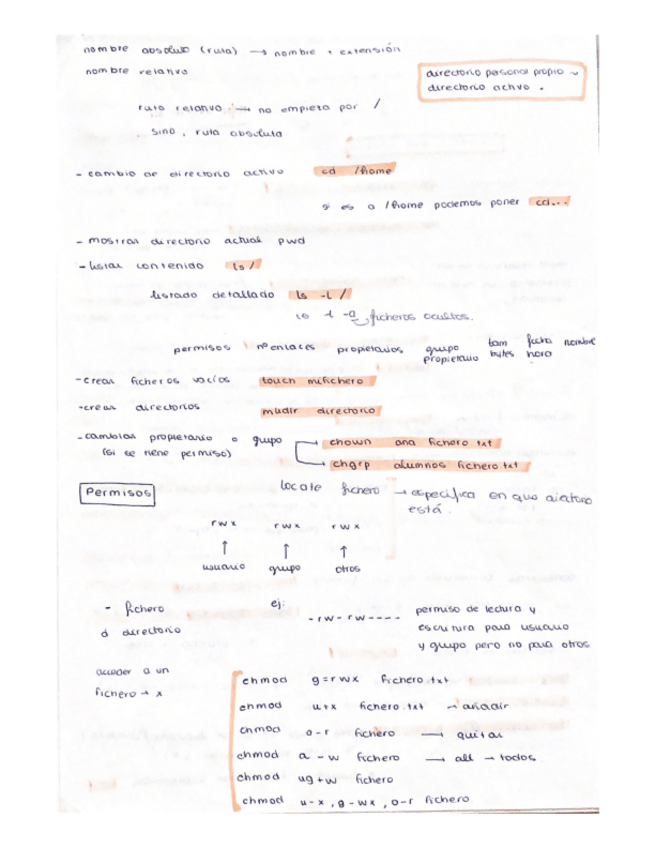 nombre absoluto (ruta) → nombre + extensión
nombre relativo
directorio personal propio ~
directorio activo .
ruta relativa → no empieza por /
sino, ruta absoluta
- cambio de directorio activo cd /home
si es a /home podemos poner cd...
- mostrar directorio actual pwd
- listar contenido ls /
listado detallado ls -l /
ls -l -a ficheros ocultos.
permisos nº enlaces propietarios grupo propietario tam bytes fecha hora nombre
- crear ficheros vacíos touch mifichero
- crear directorios mudir directorio
- cambiar propietario o grupo chown ana fichero.txt
(si se tiene permiso)
chgrp alumnos fichero.txt
Permisos
locate fichero → especifica en que
está.
rwx rwx rwx
↑ ↑ ↑
usuario grupo otros
- fichero
d directorio
ej:
-rw-rw----
permiso de lectura y
escritura para usuario
y grupo pero no para otros
acceder a un
fichero → x
chmod g=rwx fichero.txt
chmod u+x fichero.txt → añadir
chmod o-r fichero → quitar
chmod a-w fichero → all → todos.
chmod ug+w fichero
chmod u-x, g-wx, o-r fichero